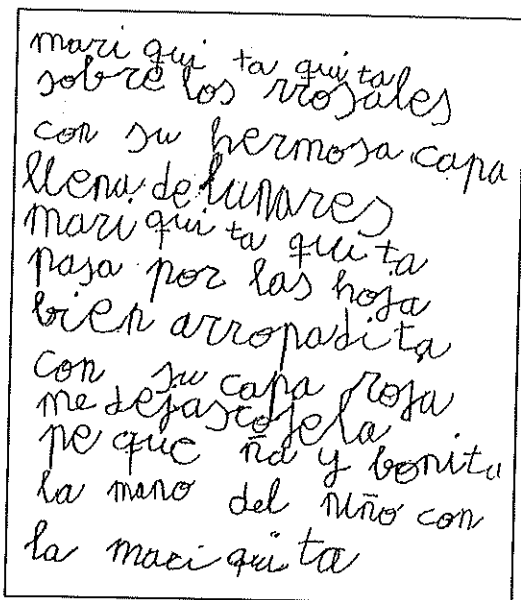 mari qui ta qui ta
sobre los rrosales
con su hermosa capa
llena de lunares
mari qui ta qui ta
pasa por las hoja
bien arropadita
con su capa roja
me dejascojela
pe que ña y bonita
la mano del niño con
la mari quita